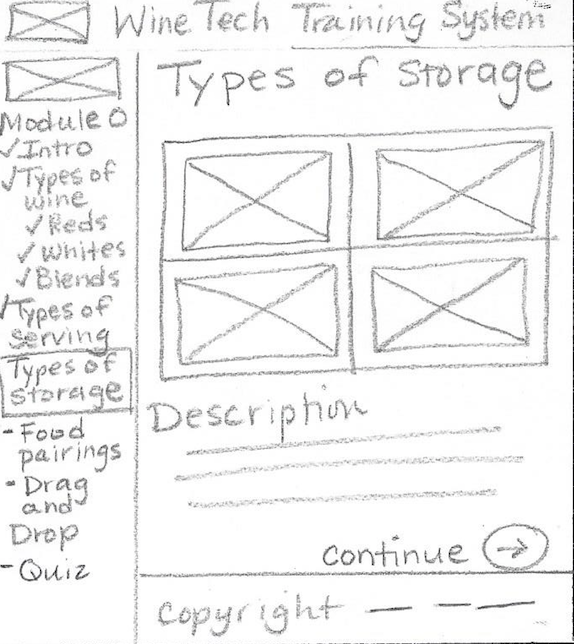 Wine Tech Training System
Module O
✓Intro
✓Types of
wine
✓Reds
✓Whites
✓Blends
✓Types of
serving
Types of
storage
- Food
pairings
- Drag
and
Drop
- Quiz
Types of Storage
Description
continue →
Copyright — — —